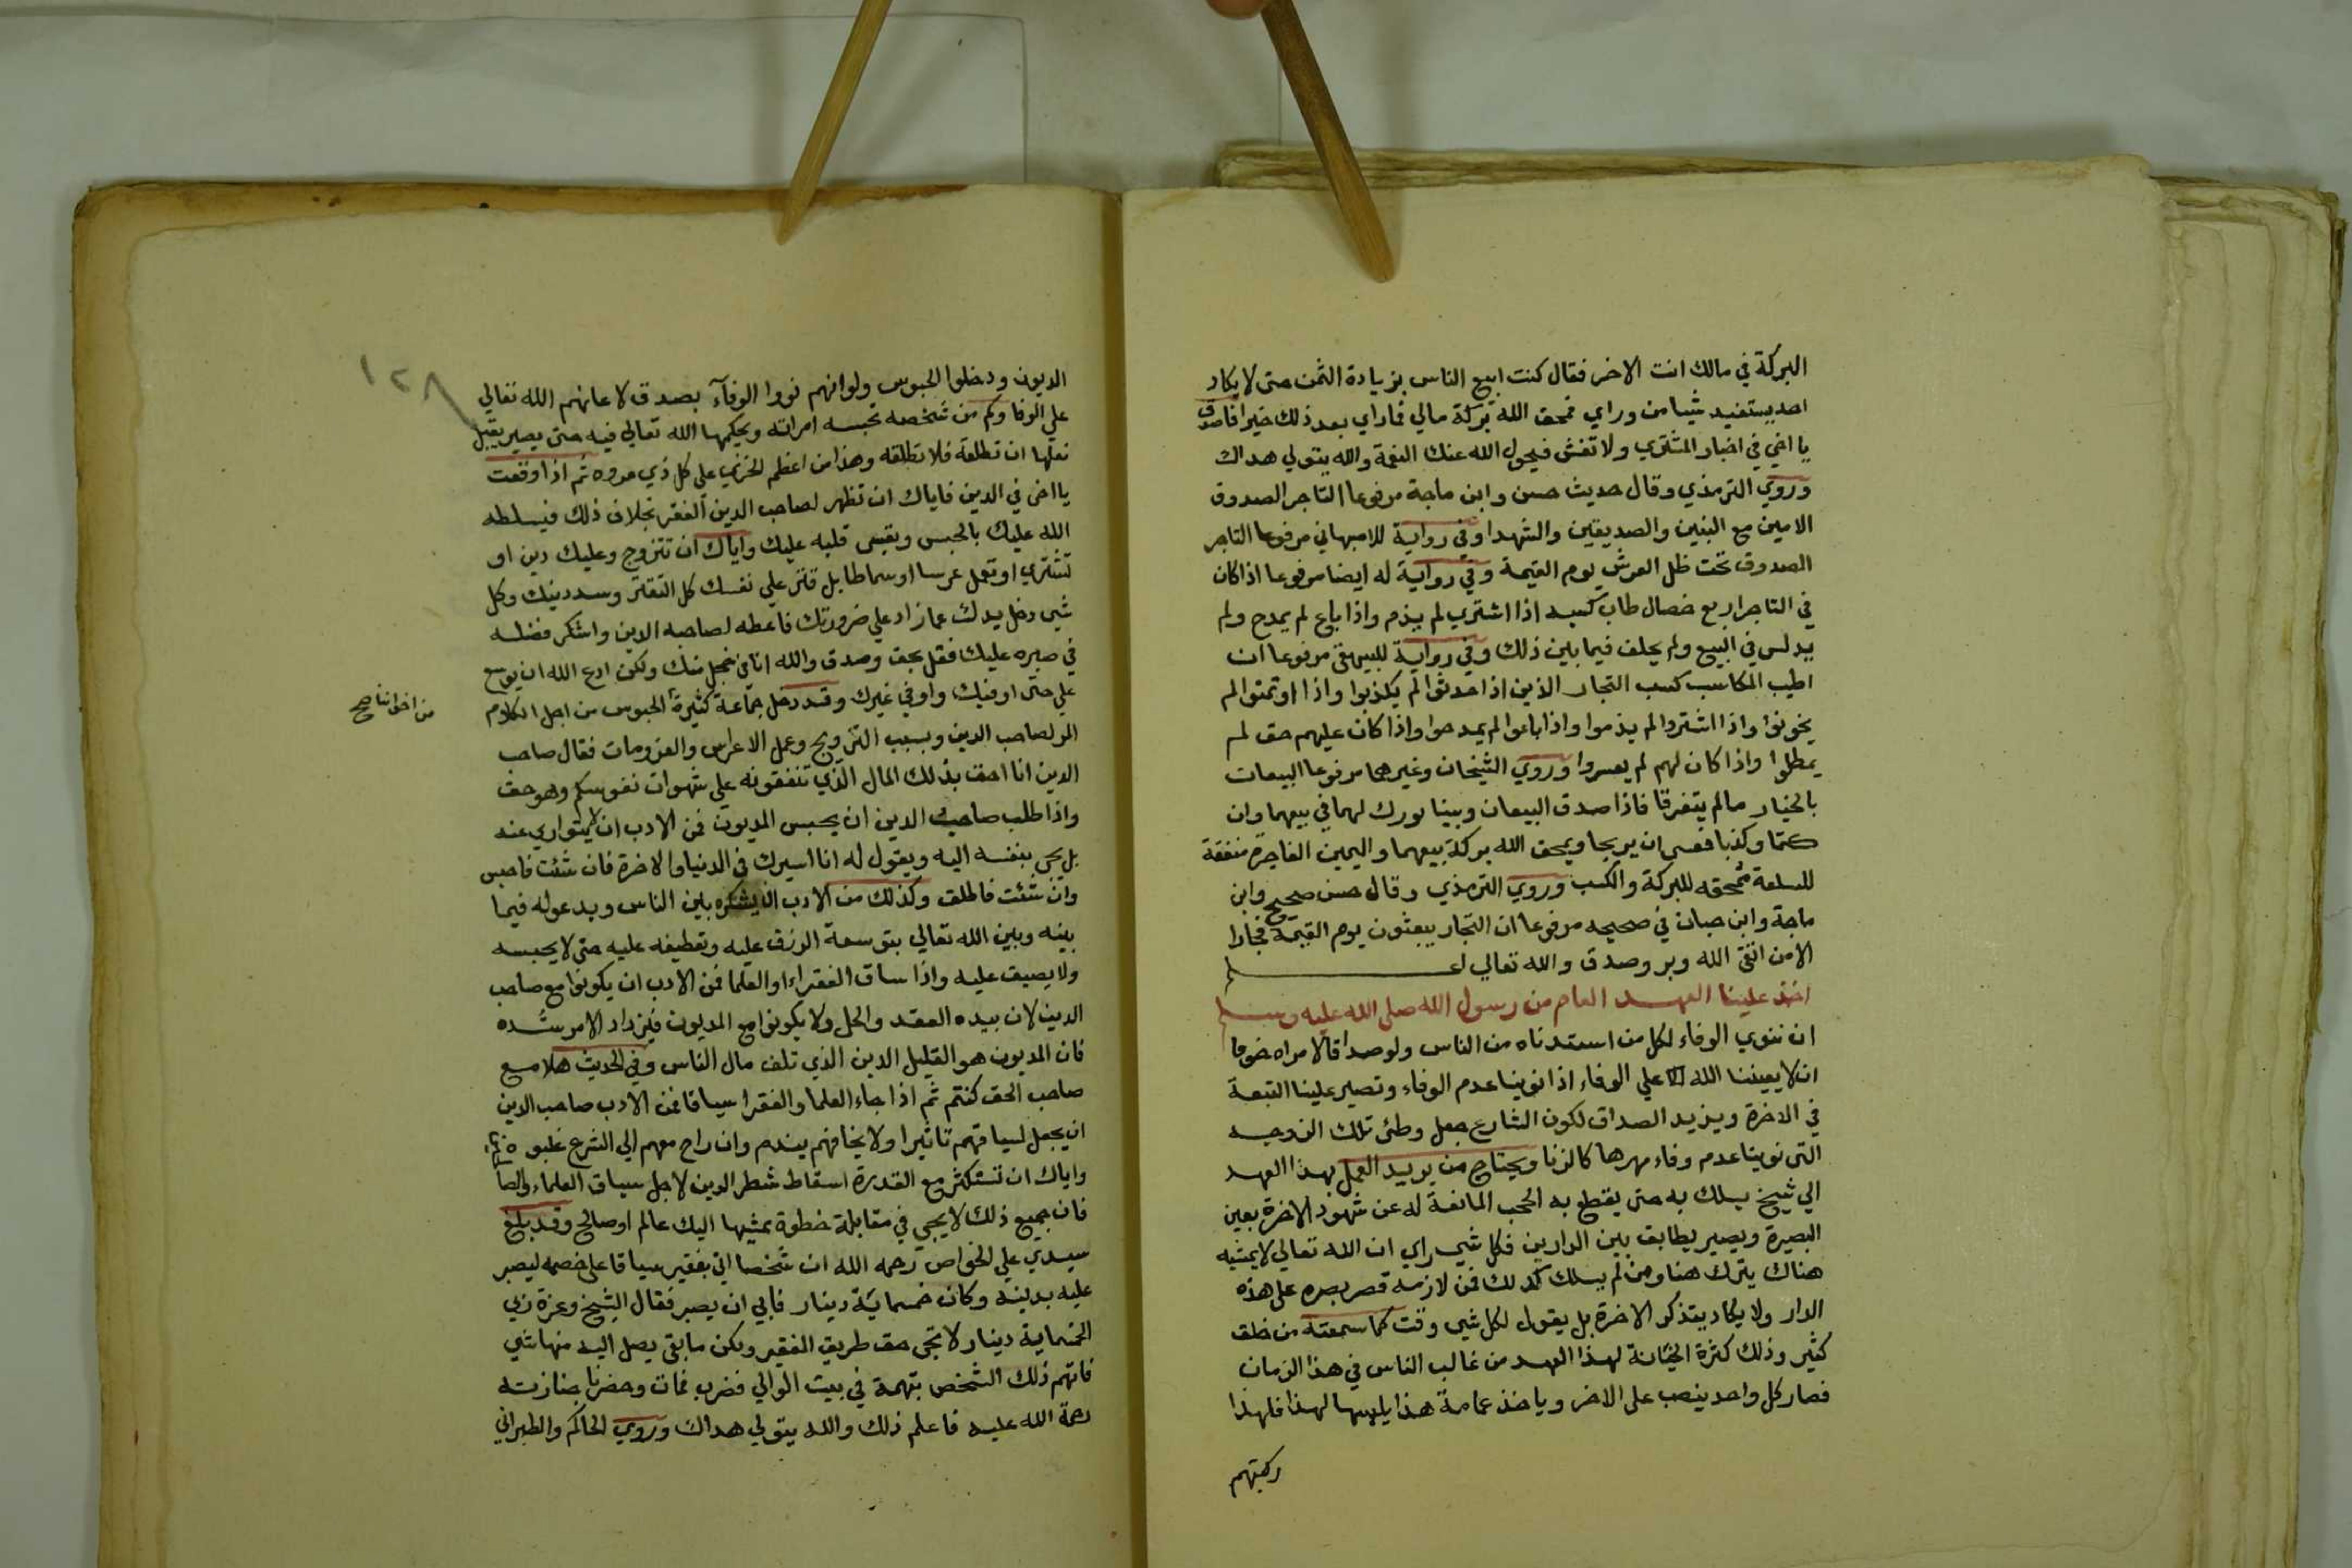 البركة في مالك انت الاخر فقال كنت ابيع الناس بزيادة الثمن حتى لا يكاد
احد يستفيد شيا من وراي فمحق الله بركة مالي فما راي بعد ذلك خيرا فاصدق
يا اخي في اخبار المشتري ولا تغش فيحول الله عنك النعمة والله يتولي هداك
وروي الترمذي وقال حديث حسن وابن ماجة مرفوعا التاجر الصدوق
الامين مع النبين والصديقين والشهدا وفي رواية للاصبهاني مرفوعا التاجر
الصدوق تحت ظل العرش يوم القيمة وفي رواية له ايضا مرفوعا اذا كان
في التاجر اربع خصال طاب كسبه اذا اشتري لم يذم واذا باع لم يمدح ولم
يدلس في البيع ولم يحلف فيما بين ذلك وفي رواية للبيهقي مرفوعا ان
اطيب المكاسب كسب التجار الذين اذا حدثوا لم يكذبوا واذا اوتمنوا لم
يخونوا واذا اشتروا لم يذموا واذا باعوا لم يمدحوا واذا كان عليهم حق لم
يمطلوا واذا كان لهم لم يعسروا وروي الشيخان وغيرهما مرفوعا البيعان
بالخيار ما لم يتفرقا فاذا صدق البيعان وبينا بورك لهما في بيعهما وان
كتما وكذبا فعسى ان يربحا ويمحق الله بركة بيعهما واليمين الفاجرة منفقة
للسلعة ممحقة للبركة والكسب وروي الترمذي وقال حسن صحيح وابن
ماجة وابن حبان في صحيحه مرفوعا ان التجار يبعثون يوم القيمة فجارا
الا من اتقى الله وبر وصدق والله تعالي اعلم
اخذ علينا العهد العام من رسول الله صلى الله عليه وسلم
ان ننوي الوفاء لكل من استدناه من الناس ولو صداقا لامراه خوفا
ان لا يعيننا الله علي الوفاء اذا نوينا عدم الوفاء وتصير علينا التبعة
في الاخرة ويزيد الصداق لكون الشارع جعل وطئ تلك الزوجه
التي نوينا عدم وفاء مهرها كالزنا ويحتاج من يريد العمل بهذا العهد
الي شيخ يسلك به حتى يقطع به الحجب المانعة له عن شهود الاخرة بعين
البصيرة ويصير يطابق بين الدارين فكل شي راي ان الله تعالي لا يمشيه
هناك يترك هنا ومن لم يسلك كذلك فمن لازمه قصر بصره على هذه
الدار ولا يكاد يتذكر الاخرة بل يقول لكل شي وقت كما سمعته من خلق
كثير وذلك كثرة الخيانة لهذا العهد من غالب الناس في هذا الزمان
فصار كل واحد ينصب على الاخر وياخذ عمامة هذا يلبسها لهذا فلهذا
ركبتهم
١٢٨
الديون ودخلوا الحبوس ولو انهم نووا الوفآء بصدق لاعانهم الله تعالي
علي الوفا وكم من شخصه تحبسه امراته ويحكمها الله تعالي فيه حتى يصير يقبل
نعلها ان تطلقه فلا تطلقه وهذا من اعظم الخزي على كل ذي مروه ثم اذا وقعت
يا اخي في الدين فاياك ان تظهر لصاحب الدين الفقر بخلاف ذلك فيسلطه
الله عليك بالحبس ويقسي قلبه عليك واياك ان تتزوج وعليك دين او
تشتري او تعمل عرسا او سماطا بل قتر علي نفسك كل التقتر وسد دينك وكل
شي دخل يدك عما زاد علي ضرورتك فاعطه لصاحب الدين واشكر فضله
في صبره عليك فقل بحق وصدق والله انا في خجل منك ولكن ادع الله ان يوسع
علي حتى اوفيك واوفي غيرك وقد دخل جماعة كثيرة الحبوس من اجل الكلام
من اخواننا صح
المر لصاحب الدين وبسبب التزويج وعمل الاعراس والعزومات فقال صاحب
الدين انا احق بذلك المال الذي تنفقونه على شهوات نفوسكم وهو حق
واذا طلب صاحب الدين ان يحبس المديون فمن الادب ان لا يتواري عنه
بل يجي بنفسه اليه ويقول له انا اسيرك في الدنيا والاخرة فان شئت فاحبس
وان شئت فاطلق وكذلك من الادب ان يشكره بين الناس ويدعو له فيما
بينه وبين الله تعالي بتوسعة الرزق عليه وتعطيفه عليه حتى لا يحبسه
ولا يضيق عليه واذا ساق الفقراء او العلما فمن الادب ان يكونوا مع صاحب
الدين لان بيده العقد والحل ولا يكونوا مع المديون فيزداد الامر شده
فان المديون هو القليل الدين الذي تلف مال الناس وفي الحديث هلا مع
صاحب الحق كنتم ثم اذا جاء العلما والفقرا سياقا فمن الادب صاحب الدين
ان يجعل لسياقهم تاثيرا ولا يخالفهم يندم وان راح معهم الي الشرع غلبوه
واياك ان تستكثر مع القدرة اسقاط شطر الدين لاجل سياق العلماء والصا
فان جميع ذلك لا يجي في مقابلة خطوة يمشيها اليك عالم او صالح وقد بلغ
سيدي علي الخواص رحمه الله ان شخصا اتي بفقير سياقا على خصمه ليصبر
عليه بدينه وكان خمسمائة دينار فابي ان يصبر فقال الشيخ وعزة ربي
الخمسماية دينار لا تجي حق طريق الفقير ولكن ما بقي يصل اليه منها شي
فاتهم ذلك الشخص بتهمة في بيت الوالي فضرب فمات وحضرنا جنازته
رحمة الله عليه فاعلم ذلك والله يتولي هداك وروي الحاكم والطبراني